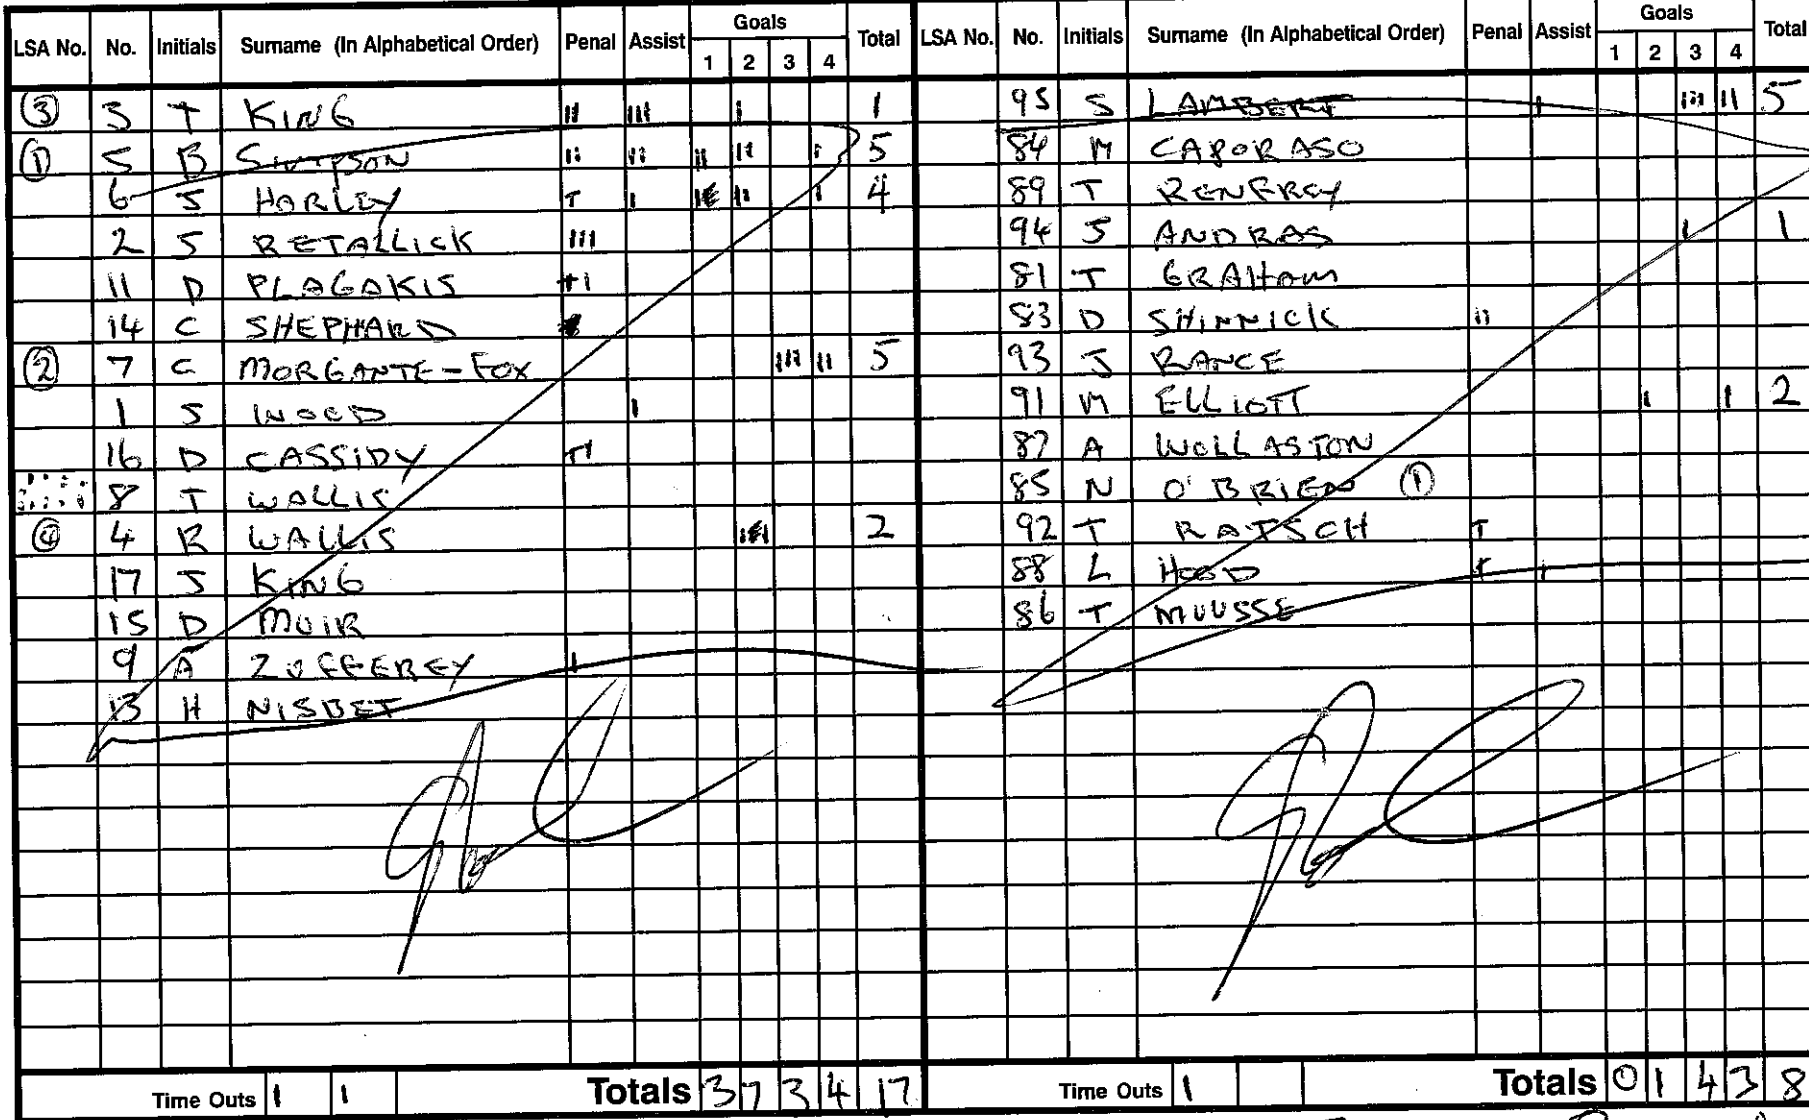 LSA No. No. Initials Surname (In Alphabetical Order) Penal Assist Goals 1 2 3 4 Total
③ 3 T KING II III I 1
① 5 B SIMPSON II II II II I 5
6 J HORLEY T I II I 4
2 J RETALLICK III
11 D PLAGAKIS TI
14 C SHEPHARD
② 7 C MORGANTE-FOX III II 5
1 J WOOD I
16 D CASSIDY TI
8 T WALLIS
④ 4 R WALLIS 2
17 J KING
15 D MUIR
9 A ZUFFEREY I
13 H NISBET
Time Outs 1 1 Totals 3 7 3 4 17
LSA No. No. Initials Surname (In Alphabetical Order) Penal Assist Goals 1 2 3 4 Total
95 S LAMBERT I III II 5
84 M CAPORASO
89 T RENFREY
94 J ANDRAS I 1
81 T GRAHAM
83 D SHINNICK II
93 J RANCE
91 M ELLIOTT I I 2
87 A WOLLASTON
85 N O'BRIEN ①
92 T RATSCH T
88 L HOOD T I
86 T MUUSSE
Time Outs 1 Totals 0 1 4 3 8